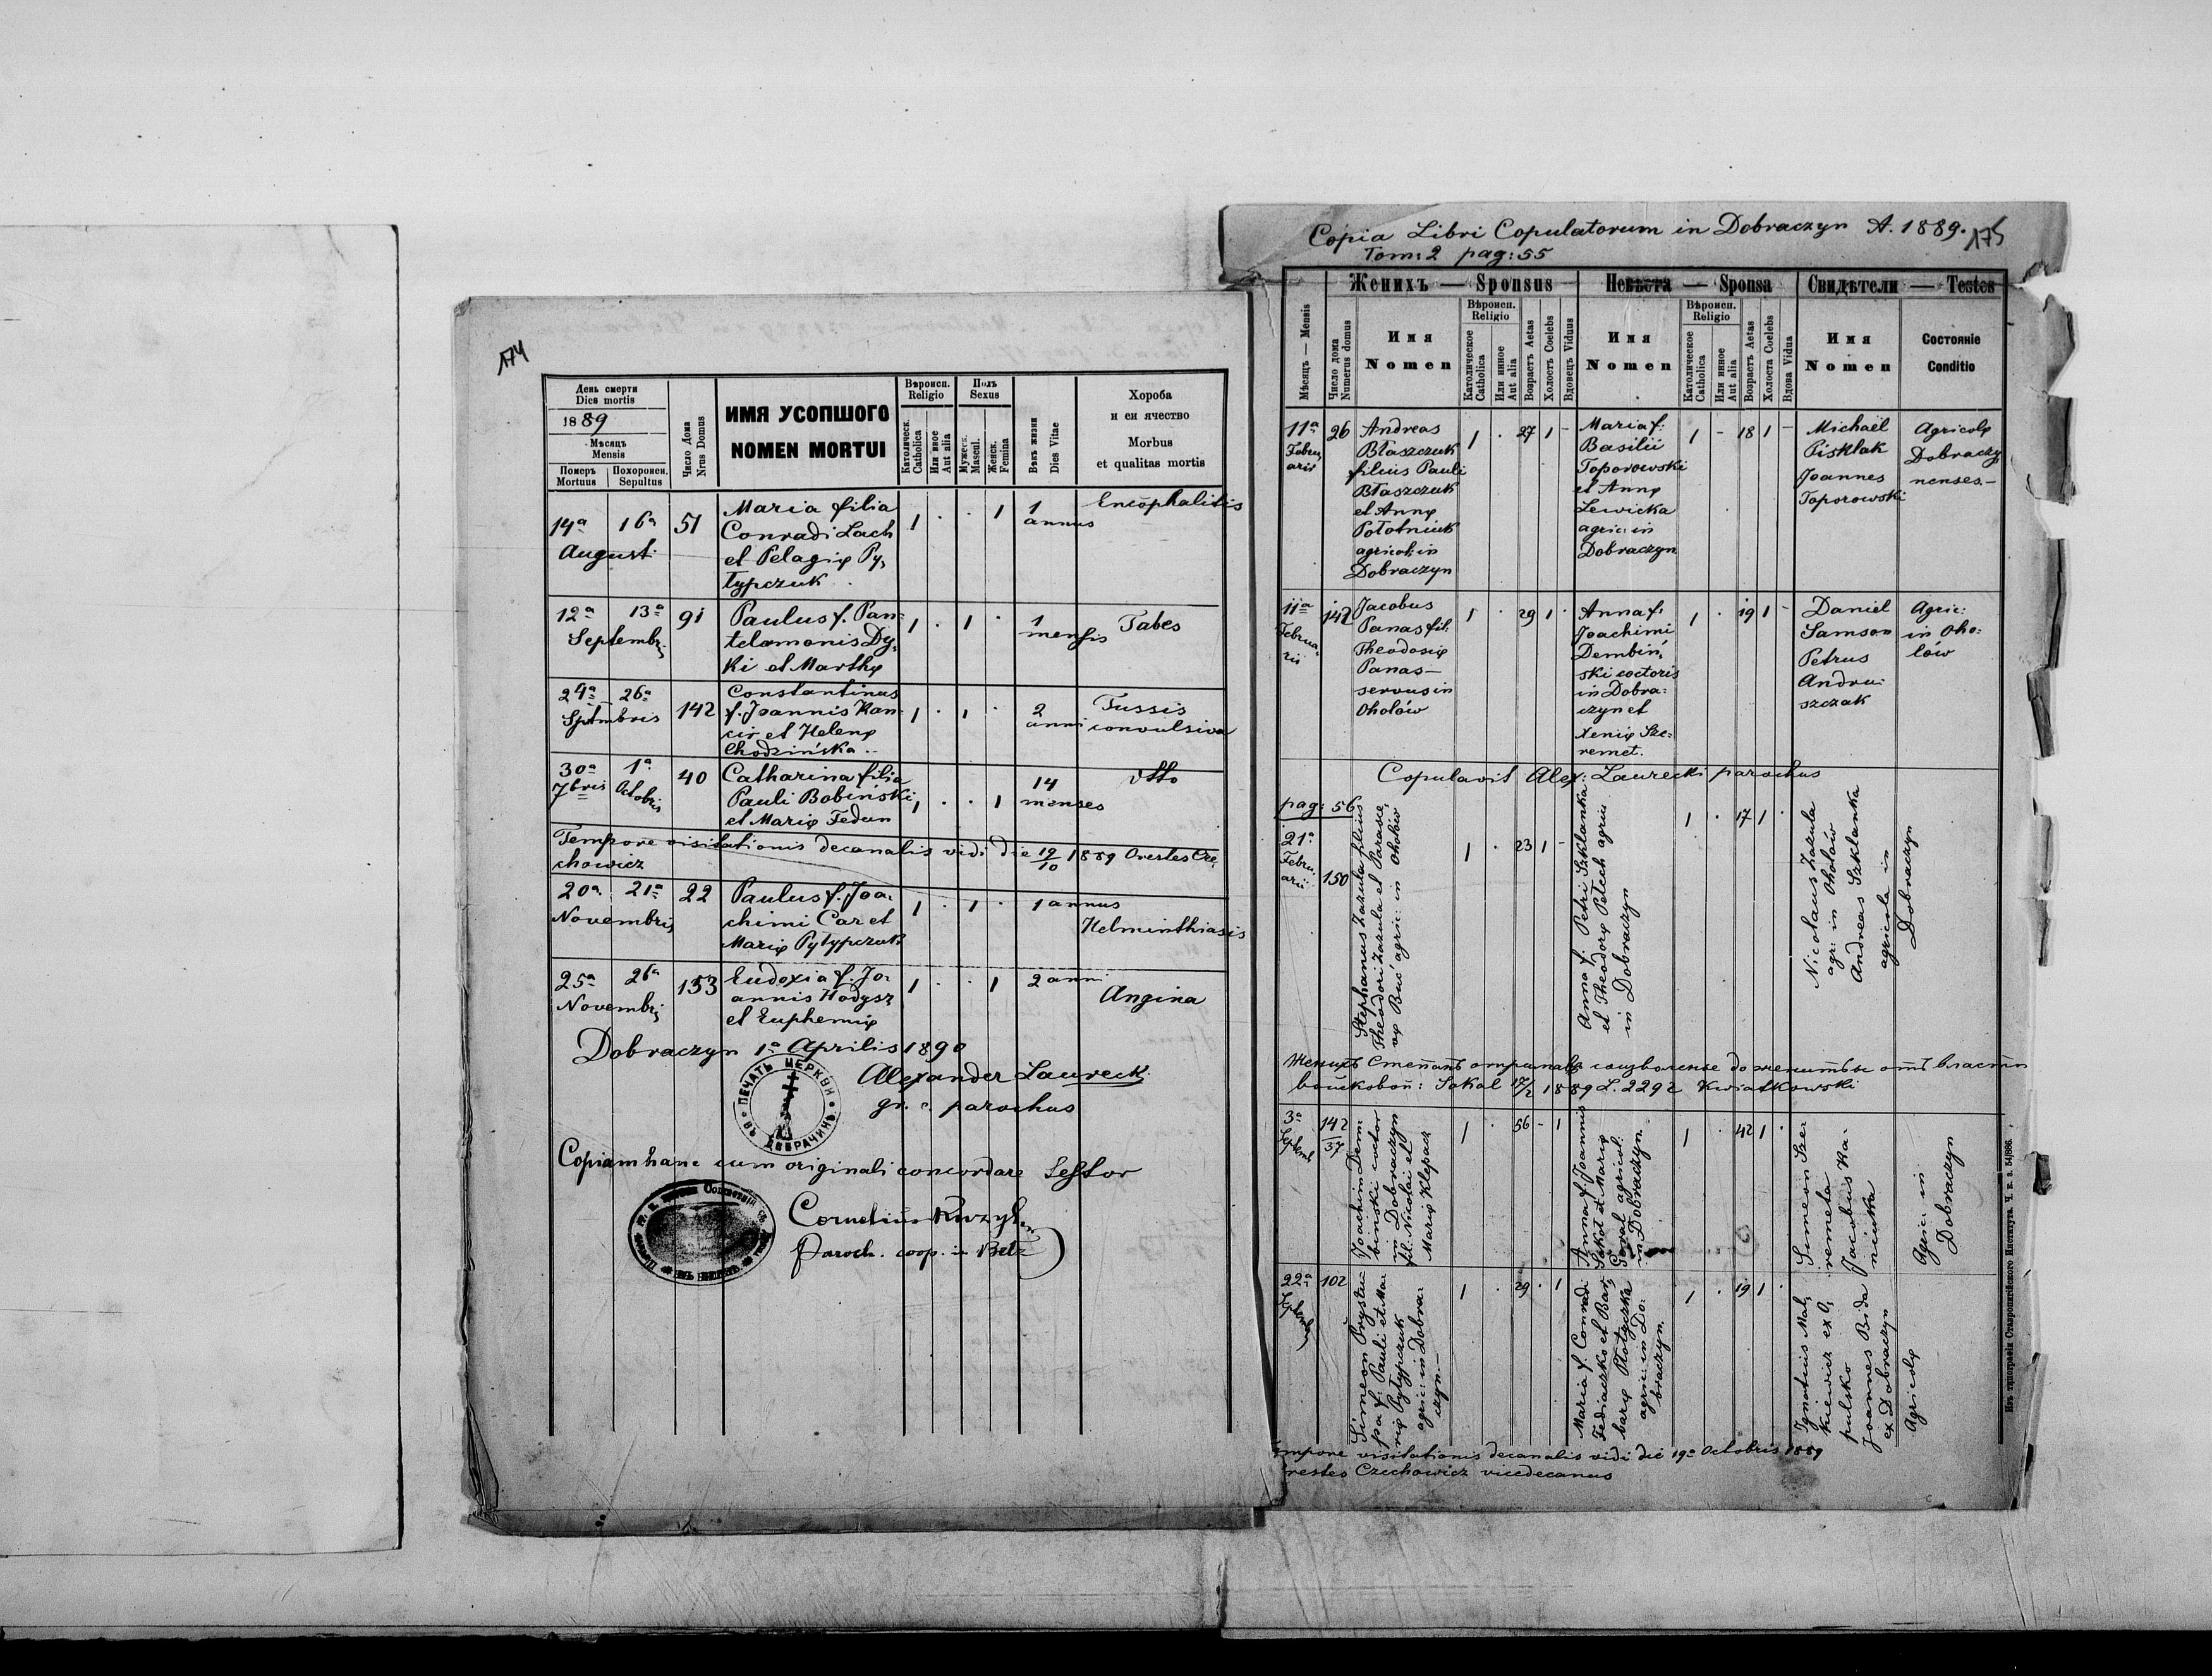 174
День смерти
Dies mortis
1889
Мѣсяцъ
Mensis
Померъ
Mortuus
Похоронен.
Sepultus
Число Дома
Nrus Domus
ИМЯ УСОПШОГО
NOMEN MORTUI
Вѣроисп.
Religio
Католическ.
Catholica
Или инное
Aut alia
Полъ
Sexus
Мужеск.
Mascul.
Женск.
Femina
Вѣкъ жизни
Dies Vitae
Хороба
и еи ячество
Morbus
et qualitas mortis
14a 16a August. 51
Maria filia
Conradi Lach
et Pelagię Py,
typczuk
1 . . 1
1
annus
Encephalitis
12a 13a Septembr. 91
Paulus f. Pan-
telemonis Dy,
ki et Marthę
1 . 1 .
1
mensis
Tabes
24a 26a Septembris 142
Constantinus
f. Joannis Kan-
cir et Helenę
Chodzińska
1 . 1 .
2
anni
Tussis
convulsiva
30a 7bris 1a Octobris 40
Catharina filia
Pauli Bobiński
et Marię Fedun
1 . . 1
14
menses
dtto
Tempore visitationis decanalis vidi die 19/10 1889 Orestes Cze,
chowicz
20a 21a Novembris 22
Paulus f. Joa-
chimi Car et
Marię Pytypczuk
1 . 1 .
1 annus
Helminthiasis
25a 26a Novembris 153
Eudoxia f. Jo-
annis Hodysz
et Euphemię
1 . . 1
2 anni
Angina
Dobraczyn 1a Aprilis 1890
Alexander Laurecki
gr. c. parochus
ПЕЧАТЬ ЦЕРКВИ
ВЪ ДОБРАЧИНѢ
Copiam hanc cum originali concordare testor
Cornelius
Paroch. coop. in Bełz
Copia Libri Copulatorum in Dobraczyn A. 1889.
175
Tom: 2 pag: 55
Мѣсяцъ — Mensis
Число дома
Numerus domus
Женихъ — Sponsus
Имя
Nomen
Вѣроисп.
Religio
Католическое
Catholica
Или инное
Aut alia
Возрастъ Aetas
Холостъ Coelebs
Вдовецъ Viduus
Невѣста — Sponsa
Имя
Nomen
Вѣроисп.
Religio
Католическое
Catholica
Или инное
Aut alia
Возрастъ Aetas
Холоста Coelebs
Вдова Vidua
Свидѣтели — Testes
Имя
Nomen
Состояніе
Conditio
11a
Febru,
arii
26
Andreas
Błaszczuk
filius Pauli
Błaszczuk
et Annę
Połotniuk
agricol: in
Dobraczyn
1 . 27 1 -
Maria f.
Basilii
Toporowski
et Annę
Lewicka
agric: in
Dobraczyn
1 - 18 1 -
Michael
Pisklak
Joannes
Toporowski
Agricolę
Dobraczy,
nenses.-
11a
Februa-
rii
142
Jacobus
Panas fil:
Theodosię
Panas —
servus in
Ohołów
1 . 29 1 .
Anna f.
Joachimi
Dembiń,
ski coctoris
in Dobra-
czyn et
Xenię Sze-
remet.
1 . 19 1 -
Daniel
Samson
Petrus
Andru-
szczak
Agric:
in Oho-
łów
Copulavit Alex: Laurecki parochus
pag: 56
21a
Febru,
arii
150
Stephanus Zazula filius
Theodori Zazula et Parasce,
vę Buś agric: in Ohołów
1 . 23 1 -
Anna f. Petri Szklanka
et Theodorę Petech agric:
in Dobraczyn
1 . 17 1 .
Nicolaus Zazula
agr: in Ohołów
Andreas Szklanka
agricola in
Dobraczyn
Женихъ Степанъ отрималъ соизволеніе до женитьбы отъ власти
войсковой: Sokal 17/2 1889 L. 2292 Kwiatkowski
3a
Septemb
142/37
Joachim Dem-
biński coctor
in Dobraczyn
fil. Nicolai et
Marię Klepacz
1 . 56 - 1
Anna f. Joannis
Sokoł et Marię
agricol:
in Dobraczyn.
1 . 42 1 .
Simeon Sze-
remeta
Jacobus Ka-
niuka
Agric: in
Dobraczyn
22a
Septemb
102
Simeon Prystu-
pa f. Pauli et Ma-
rię Pytypczuk
agric: in Dobra-
czyn.—
1 . 29 . 1
Maria f. Conradi
Fediaczko et Bar,
barę Płotyczka
agric: in Do-
braczyn.
1 . 19 1 .
Ignatius Mal,
kiewicz ex O,
pulsko
Joannes Bida
ex Dobraczyn
Agricolę
Tempore visitationis decanalis vidi die 19a Octobris 1889
Orestes Czechowicz vicedecanus
Изъ типографіи Ставропигійского Института. Ч. к. з. 54/886.